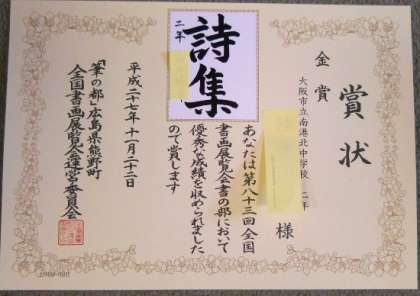 賞状
金賞
大阪市立南港北中学校 二年
様
あなたは第八十三回全国
書画展覧会書の部において
優秀な成績を収められました
ので賞します
二年
詩集
平成二十七年十一月二十二日
「筆の都」広島県熊野町
全国書画展覧会運営委員会